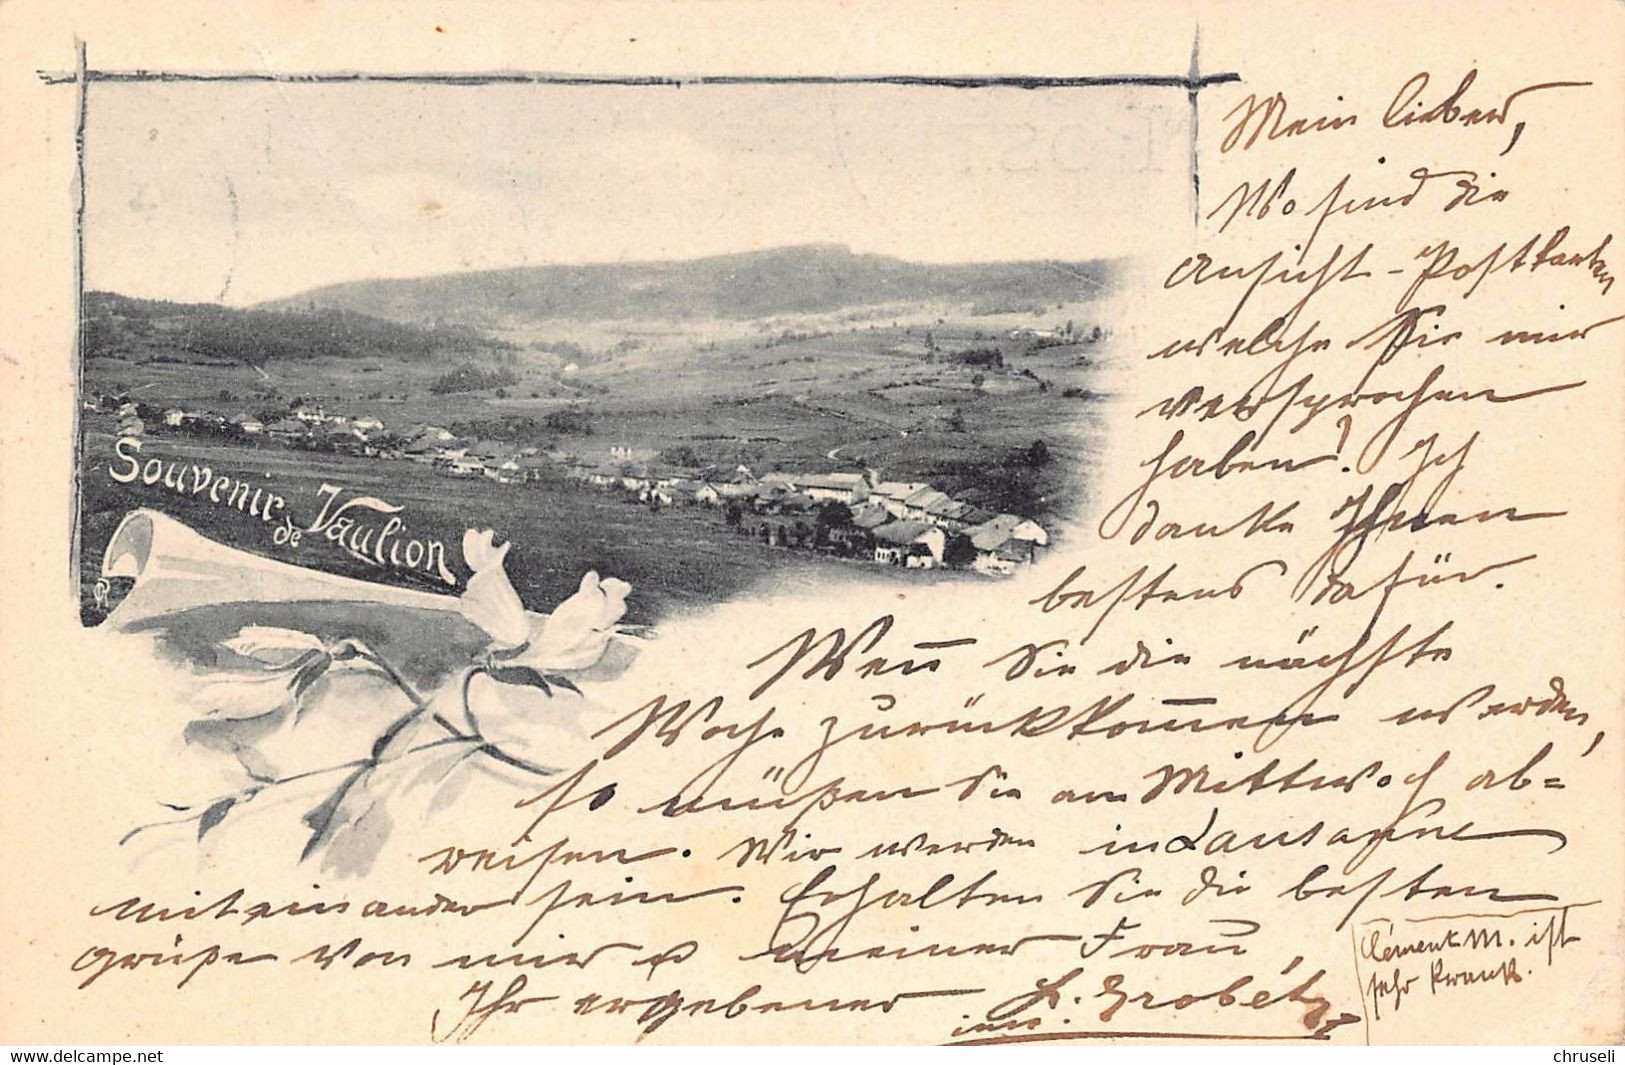 Souvenir
de Vaulion
Mein lieber,
Wo sind die
Ansicht-Postkarten
welche Sie mir
versprochen
haben? Ich
danke Ihnen
bestens dafür.
Wen̅ Sie die nächste
Woche zurückkom̅en werden,
so müßen Sie am Mittwoch ab=
weisen. Wir werden in Lausanne
miteinander sein. Erhalten Sie die besten
grüße von mir u meiner Frau,
Ihr ergebener
Grobéty
Clément M. ist
sehr krank.
www.delcampe.net
chruseli